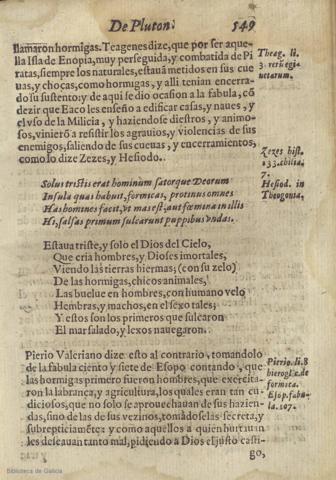 De Pluton.
549
llamaron hormigas. Teagenes dize, que por ser aque-
lla Isla de Enopia, muy perseguida, y combatida de Pi
ratas, siempre los naturales, estauã metidos en sus cue
uas, y choças, como hormigas, y alli tenian encerra-
do su sustento: y de aqui se dio ocasion a la fabula, cõ
dezir que Eaco les enseño a edificar casas, y naues, y
el vso de la Milicia, y haziendose diestros, y animo-
sos, vinierõ a resistir los agrauios, y violencias de sus
enemigos, saliendo de sus cueuas, y encerramientos,
como lo dize Zezes, y Hesiodo.
Theag. li.
3. rerũ egi
netarum.
Zezes hist.
133. chilia.
7.
Hesiod. in
Theogonia.
Solus tristis erat hominum satorque Deorum
Insula quas habuit, formicas, protinus omnes
Has homines facit, vt mas est, aut fœmina in illis
Hi, salsas primum sulcarunt puppibus vndas.
Estaua triste, y solo el Dios del Cielo,
Que cria hombres, y Dioses imortales,
Viendo las tierras hiermas; (con su zelo)
De las hormigas, chicos animales,
Las buelue en hombres, con humano velo
Hembras, y machos, en el sexo tales;
Y estos son los primeros que sulcaron
El mar salado, y lexos nauegaron.
Pierio Valeriano dize esto al contrario, tomandolo
de la fabula ciento y siete de Esopo contando, que
las hormigas primero fueron hombres, que exercita-
ron la labrança, y agricultura, los quales eran tan cu-
diciosos, que no solo se aprouechauan de sus hazien-
das, sino de las de sus vezinos, tomãdoselas secreta, y
subrepticiamẽte: y como aquellos a quien hurtauan
les desseauan tanto mal, pidiendo a Dios el justo casti-
go,
Pierio. li. 8
hierogl. c. de
formica.
Esop. fabu-
la. 107.
Biblioteca de Galicia